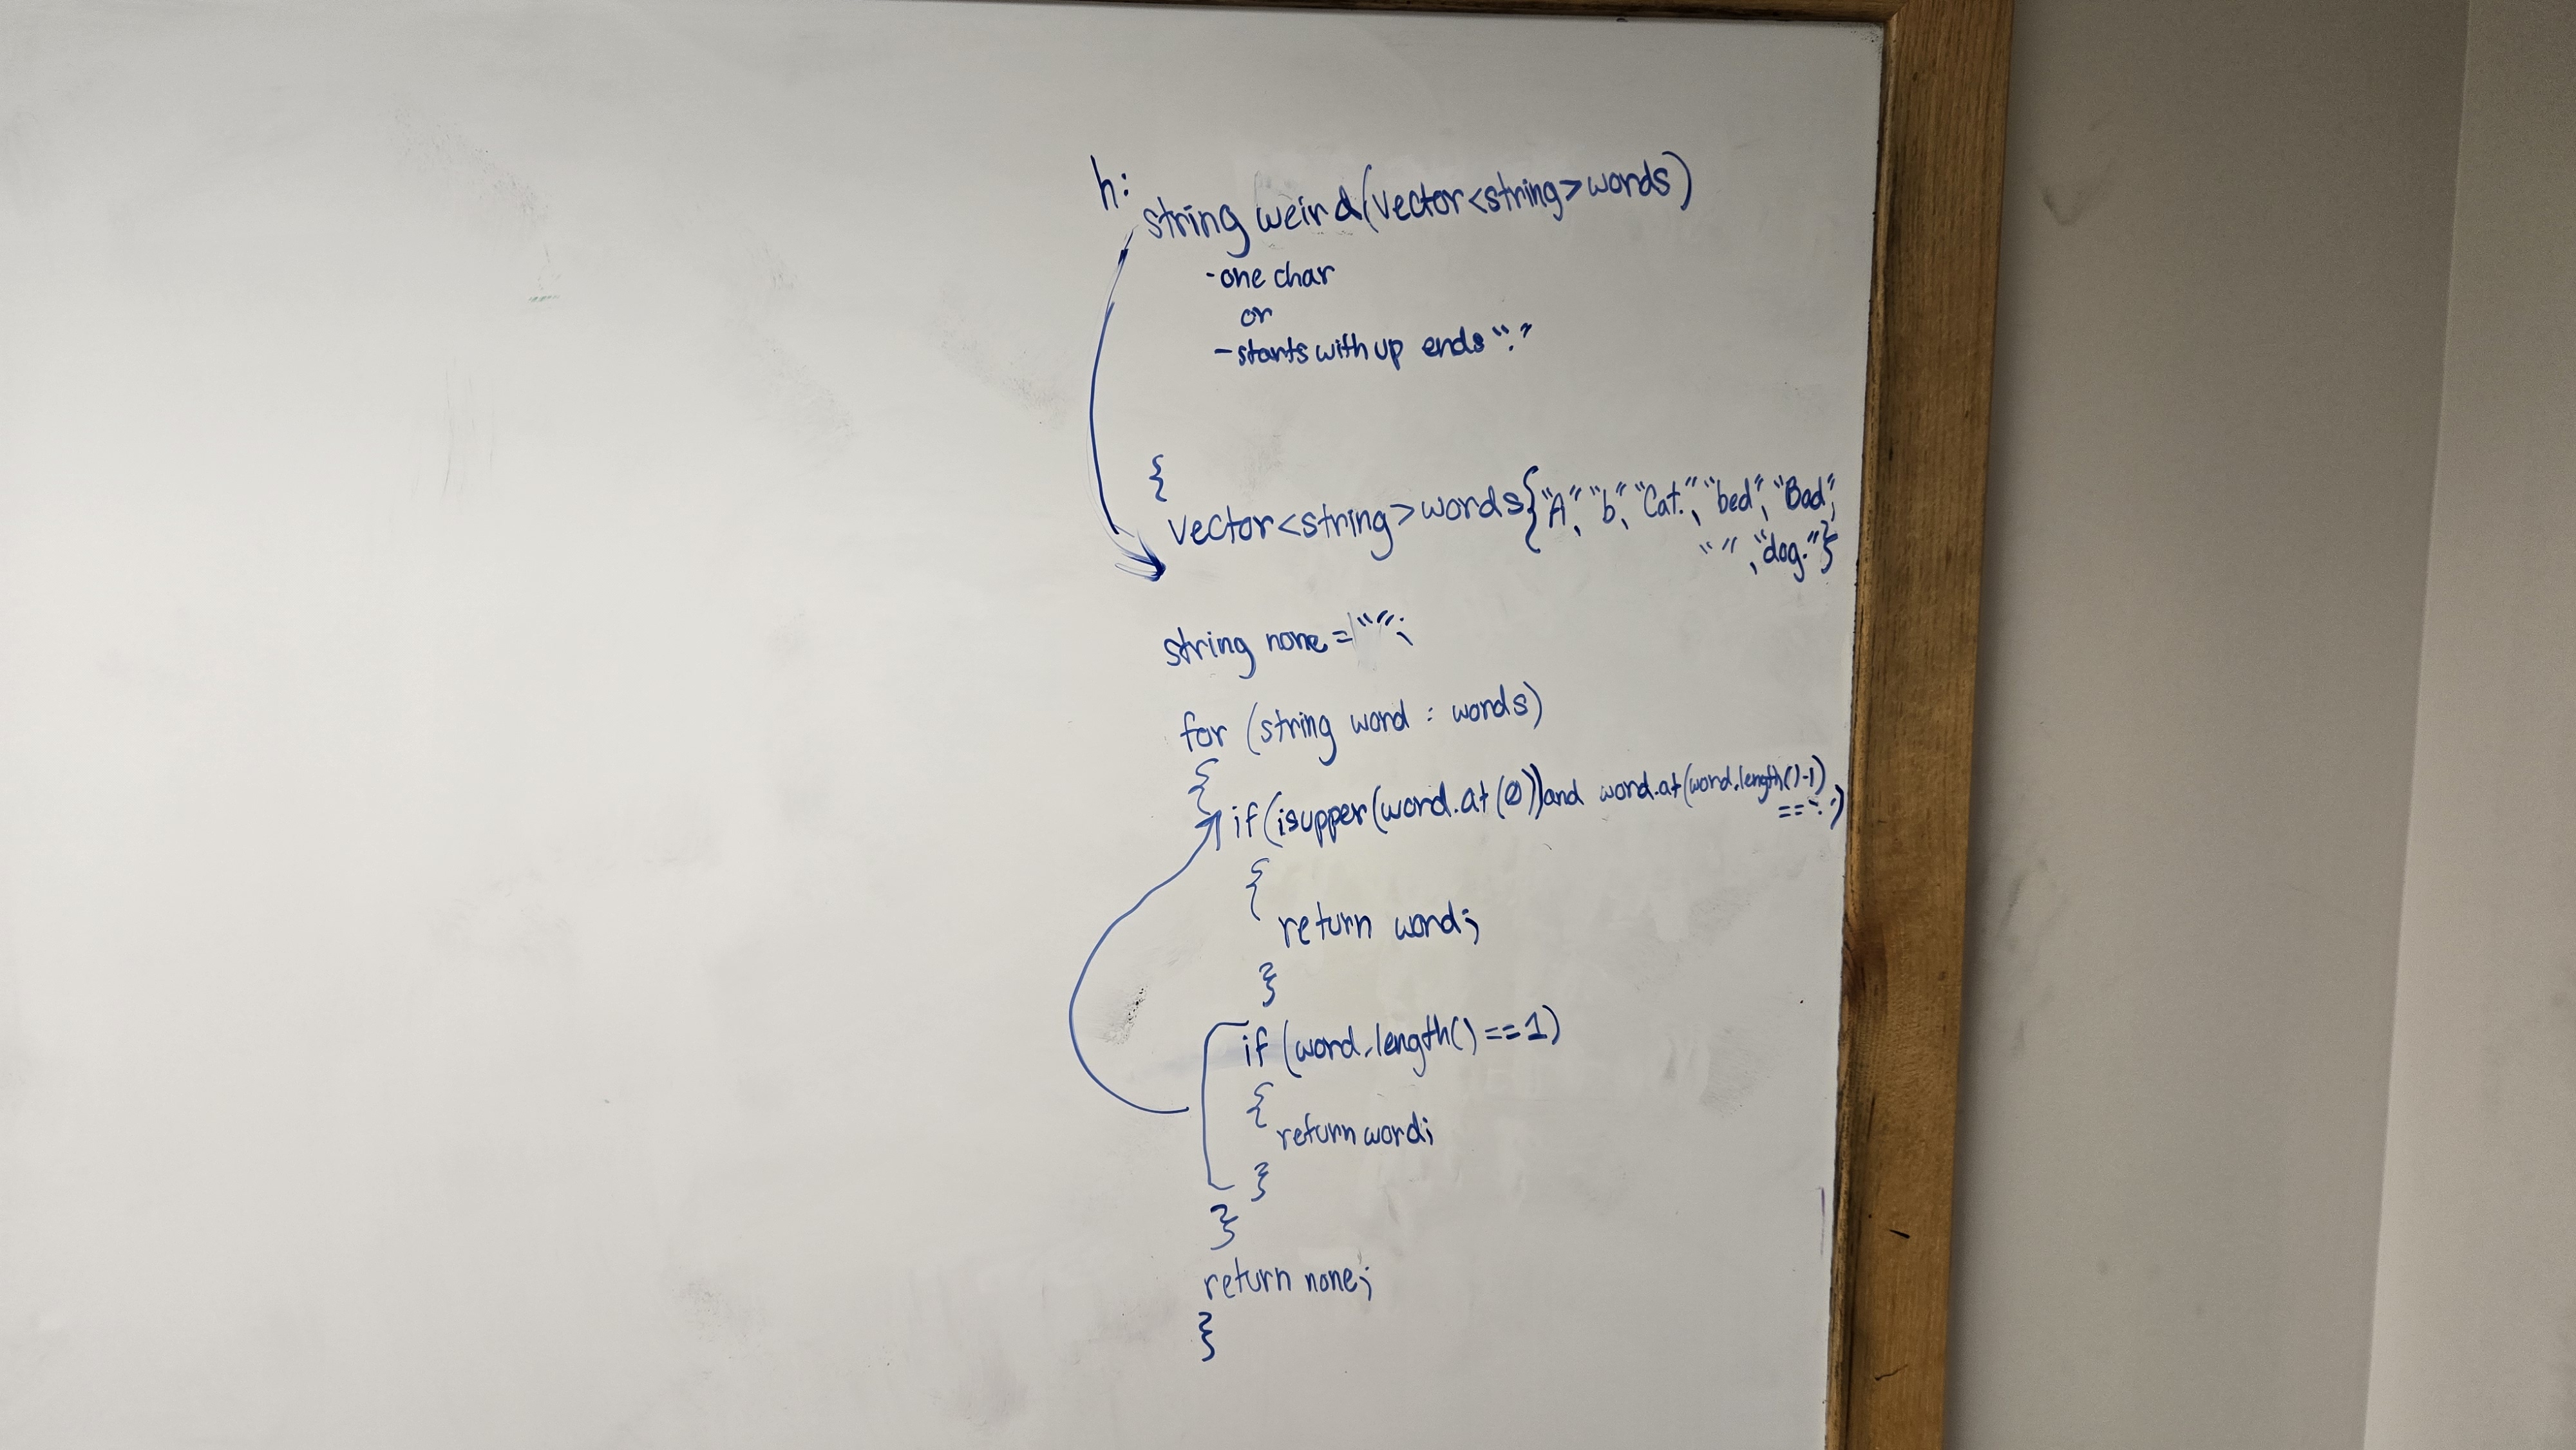 h:
string weird(vector<string>words)
-one char
or
-starts with up ends "."
{
vector<string>words{"A", "b", "Cat.", "bed", "Bad",
" ", "dog."}
string none = "";
for (string word : words)
{
if(isupper(word.at(0))and word.at(word.length()-1)
=='.')
{
return word;
}
if (word.length()==1)
{
return word;
}
}
return none;
}